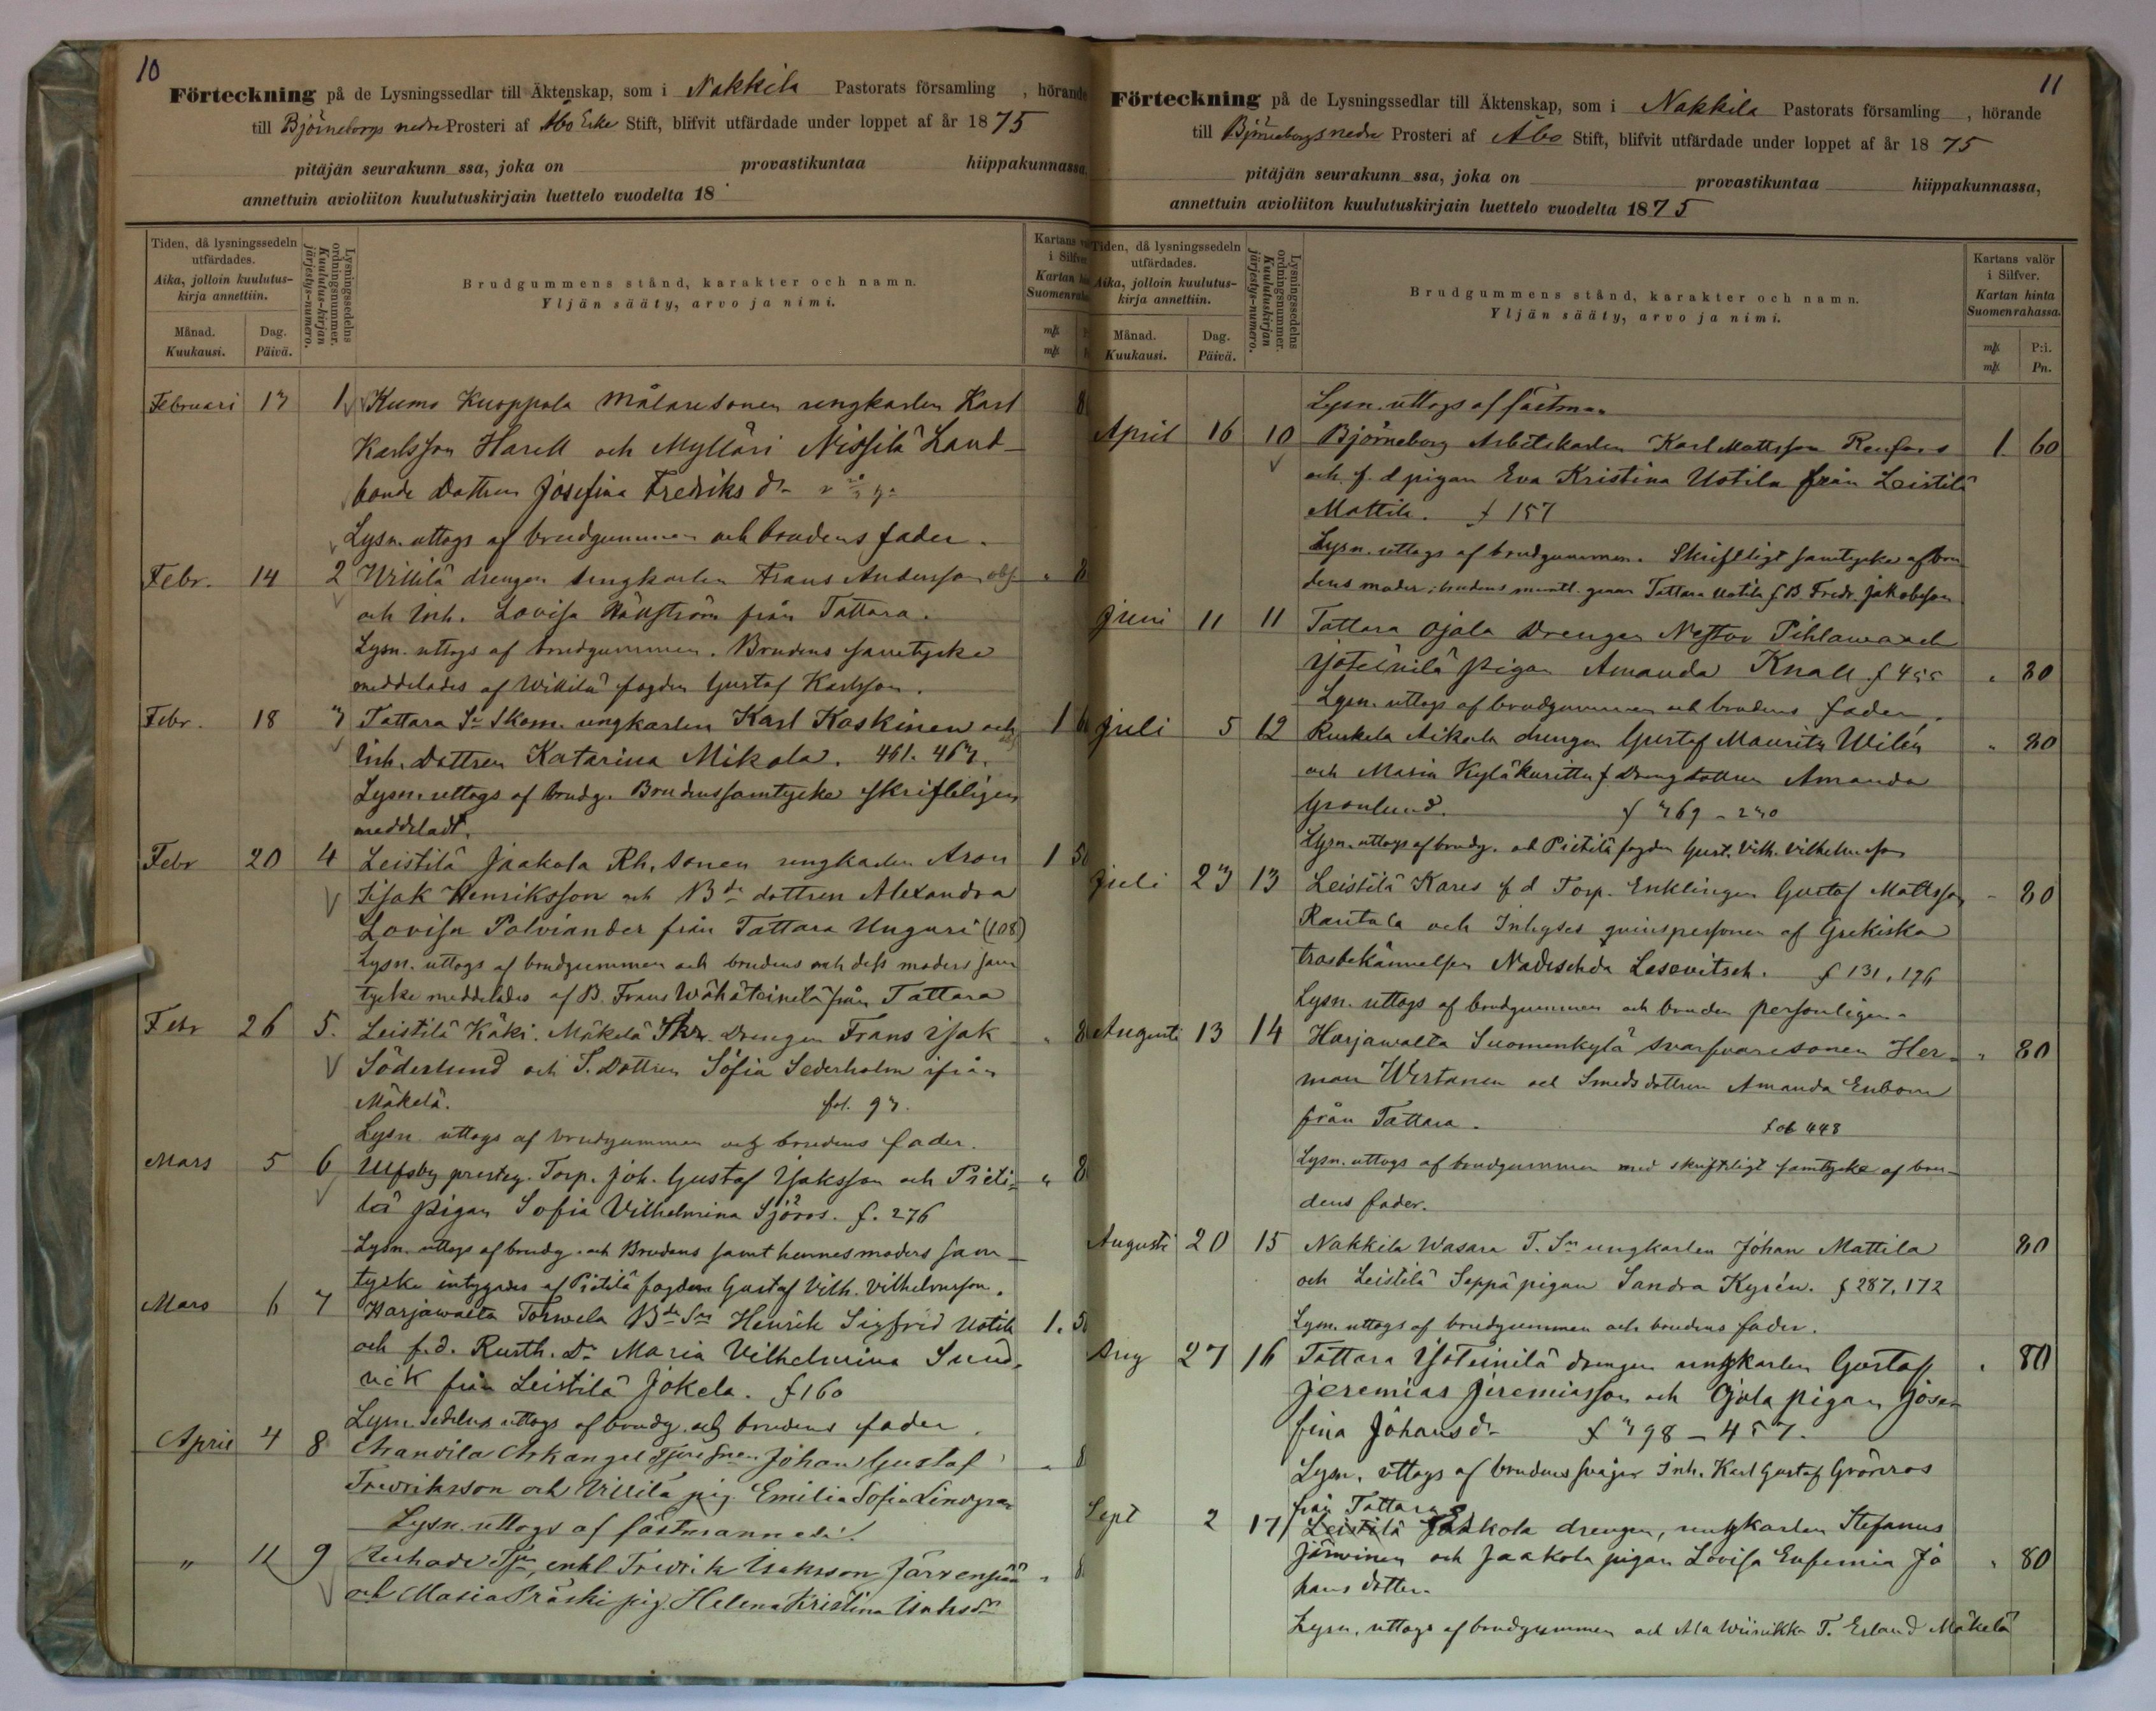 10
Förteckning på de Lysningssedlar till Äktenskap, som i Nakkila Pastorats församling , hörande
till Björneborgs nedre Prosteri af Åbo Erke Stift, blifvit utfärdade under loppet af år 1875
pitäjän seurakunn ssa, joka on provastikuntaa hiippakunnassa,
annettuin avioliiton kuulutuskirjain luettelo vuodelta 18
Tiden, då lysningssedeln utfärdades.
Aika, jolloin kuulutus-kirja annettiin.
Månad. Kuukausi.
Dag. Päivä.
Lysningssedelns ordningsnummer.
Kuulutus-kirjan järjestys-numero.
Brudgummens stånd, karakter och namn.
Yljän sääty, arvo ja nimi.
Kartans
i Silfver
Kartan
Suomenraha
mk
mk
Februari 13 1 Kumo Kuoppala Målaresonen ungkarlen Karl 8
Karlsson Harell och Mylläri Nissilä Land-
bonde Dottren Josefina Fredriks dr
Lysn. uttogs af brudgummen och brudens fader.
Febr. 14 2 Willilä drengen ungkarlen Frans Andersson " 8
och Inh. Lovisa från Tattara.
Lysn. uttogs af brudgummen. Brudens samtycke
meddelades af Willilä fogden Gustaf Karlsson.
Febr. 18 3 Tattara Sn Skom. ungkarlen Karl Koskinen och 1 6
Inh. dottren Katarina Mikola. 461. 463.
Lysn. uttogs af brudg. Brudens samtycke skriftligen
meddeladt.
Febr 20 4 Leistilä Jaakola Rh. sonen ungkarlen Aron 1 50
Isak Henriksson och Bde dottren Alexandra
Lovisa Palviander från Tattara Unguri (108)
Lysn. uttogs af brudgummen och brudens och dess moders sam
tycke meddelades af B. Frans Wähäteinilä från Tattara
Febr 26 5. Leistilä Käki. Mäkelä Skr. Drengen Frans Isak " 8
Söderlund och S. Dottren Sofia Sederholm ifrån
Mäkelä. fol. 93.
Lysn. uttogs af brudgummen och brudens fader.
Mars 5 6 Ulfsby presteg. Torp. Joh. Gustaf Isaksson och Pieti- " 8
lä pigan Sofia Vilhelmina Sjöros. f. 276
Lysn. uttogs af brudg. och Brudens samt hennes moders sam-
tycke intygades af Pietilä fogden Gustaf Vilh. Vilhelmsson.
Mars 6 7 Harjawalta Torwela Bde Sn Henrik Sigfrid Uotila 1. 50
och f.d. Rusth. Dr Maria Vilhelmina Sund-
vik från Leistilä Jokela. f 160
Lysn. Sedelns uttogs af brudg. och brudens fader.
April 4 8 Anavila Arkangel Johan Gustaf " 8
Fredriksson och Villilä pig. Emilia Sofia Lindgren
Lysn. uttogs af fästmannen
" 11 9 enkl. Fredrik Isaksson Järvenpää " 8
och Masia Präski pig. Helena Kristina Isaksdr
11
Förteckning på de Lysningssedlar till Äktenskap, som i Nakkila Pastorats församling , hörande
till Björneborgs nedre Prosteri af Åbo Stift, blifvit utfärdade under loppet af år 1875
pitäjän seurakunn ssa, joka on provastikuntaa hiippakunnassa,
annettuin avioliiton kuulutuskirjain luettelo vuodelta 1875
Tiden, då lysningssedeln utfärdades.
Aika, jolloin kuulutus-kirja annettiin.
Månad. Kuukausi.
Dag. Päivä.
Lysningssedelns ordningsnummer.
Kuulutuskirjan järjestys-numero.
Brudgummens stånd, karakter och namn.
Yljän sääty, arvo ja nimi.
Kartans valör i Silfver.
Kartan hinta Suomenrahassa.
mk P:i.
mk Pn.
Lysn. uttogs af fästman
April 16 10 Björneborg Arbetskarlen Karl Mattsson Renfors 1. 60
och f. d pigan Eva Kristina Uotila från Leistilä
Mattila. f 157
Lysn. uttogs af brudgummen. Skriftligt samtycke af bru
dens moder, brudens muntl. genom Tattara Uotila f.B. Fredr. Jakobsson
Juni 11 11 Tattara Ojala Drengen Nestor Pihlawa och
Yöteinilä pigan Amanda Knall f 455 " 80
Lysn. uttogs af brudgummen och brudens fader.
Juli 5 12 Ruskela Aikala drengen Gustaf Mauritz Wilén " 80
och Masia Kyläkurittu f. Drengdottren Amanda
Gronlund. f 369 - 230
Lysn. uttogs af brudg. och Pietilä fogden Gust. Vilh. Vilhelmsson
Juli 23 13 Leistilä Kares f d Torp. Enklingen Gustaf Mattsson - 80
Rantala och Inhyses qvinspersonen af Grekiska
trosbekännelsen Nadeschda Lesevitsch. f 131, 196
Lysn. uttogs af brudgummen och bruden personligen.
Augusti 13 14 Harjawalta Suomenkylä Svarfvaresonen Her- " 80
man Wirtanen och Smedsdottren Amanda Enbom
från Tattara. fol 448
Lysn. uttogs af brudgummen med skriftligt samtycke af bru-
dens fader.
Augusti 20 15 Nakkila Wasara T. Sn ungkarlen Johan Mattila 80
och Leistilä Seppä pigan Sandra Kyrén. f 287, 172
Lysn. uttogs af brudgummen och brudens fader.
Aug 27 16 Tattara Yöteinilä drengen ungkarlen Gustaf " 80
Jeremias Jeremiasson och Ojala pigan Jose-
fina Johansdr f 398 - 457.
Lysn. uttogs af brudens svåger Inh. Karl Gustaf Grönroos
från Tattara
Sept 2 17 Leistilä Jaakola drengen, ungkarlen Stefanus
Järvinen och Jaakola pigan Lovisa Eufemia Jo " 80
hans dotter.
Lysn. uttogs af brudgummen och Ala Wiinikka T. Erland Mäkelä